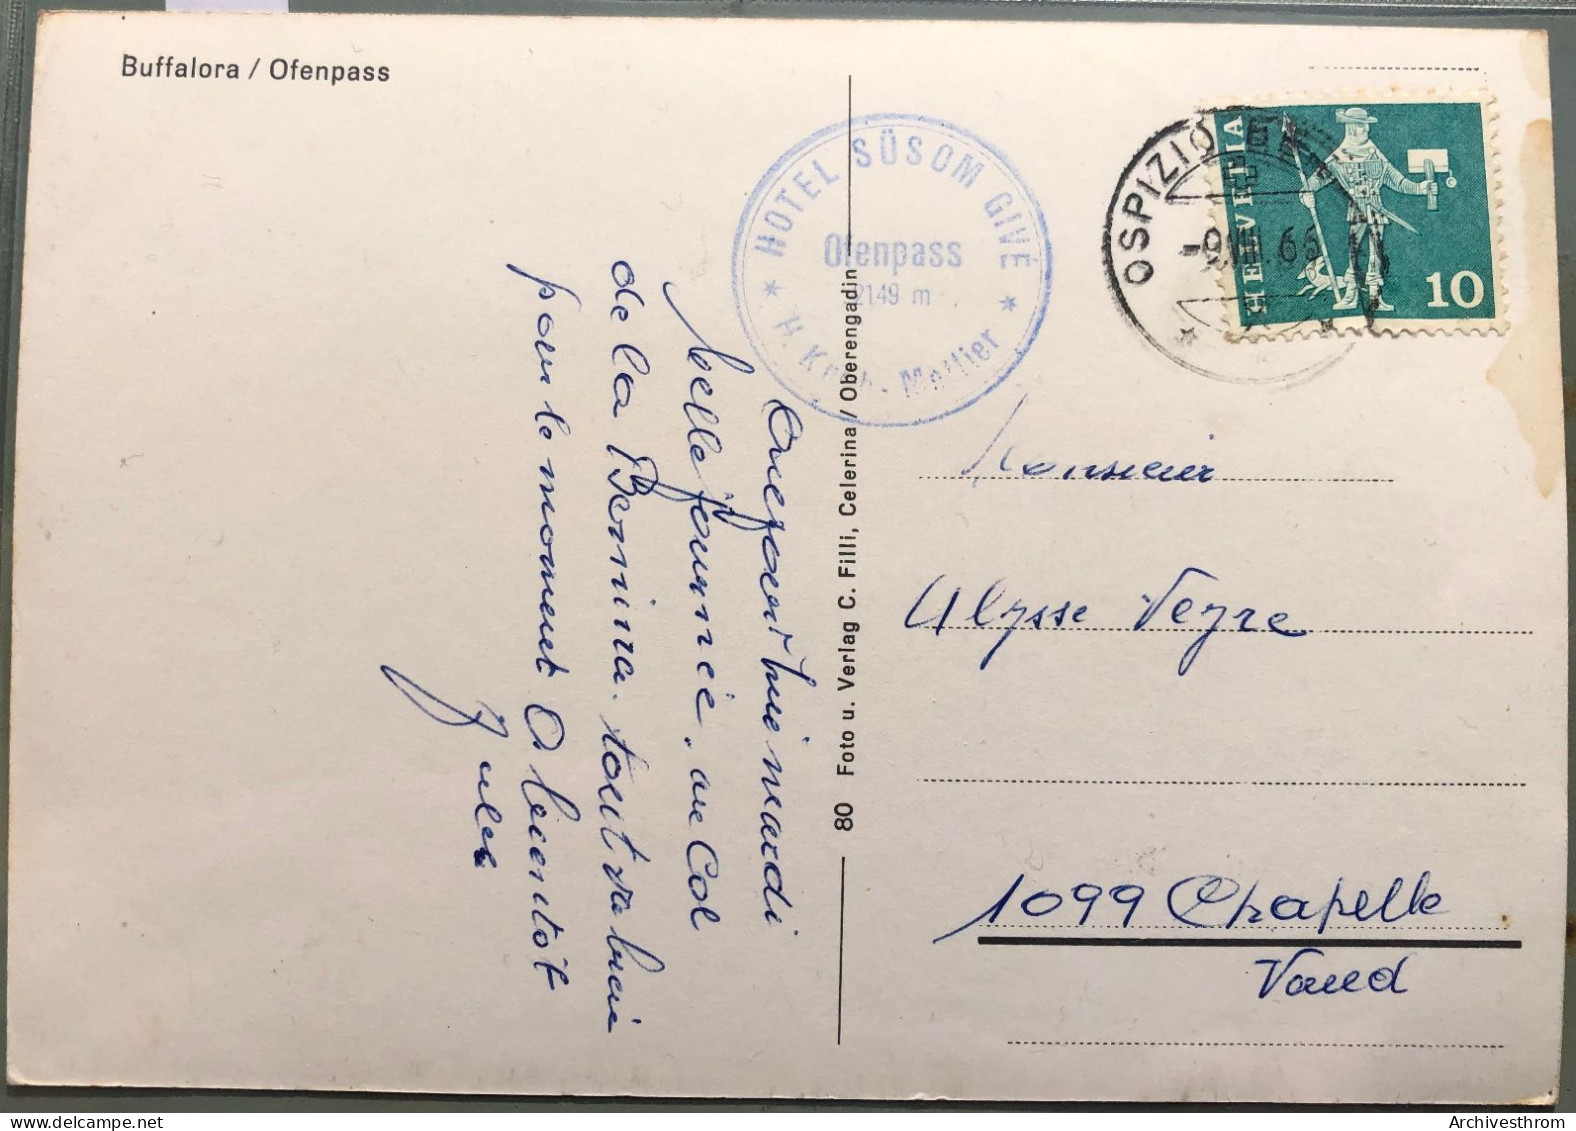 Buffalora / Ofenpass
HOTEL SÜSOM GIVÈ
Ofenpass
2149 m
Mottier
OSPIZIO
-9.VIII.66
HELVETIA
10
Aujourd'hui mardi
belle journée, au Col
de la Bernina. tout va bien
pour le moment A bientôt
Jules
80 Foto u. Verlag C. Filli, Celerina / Oberengadin
Monsieur
Ulysse Veyre
1099 Chapelle
Vaud
Archivesthrom